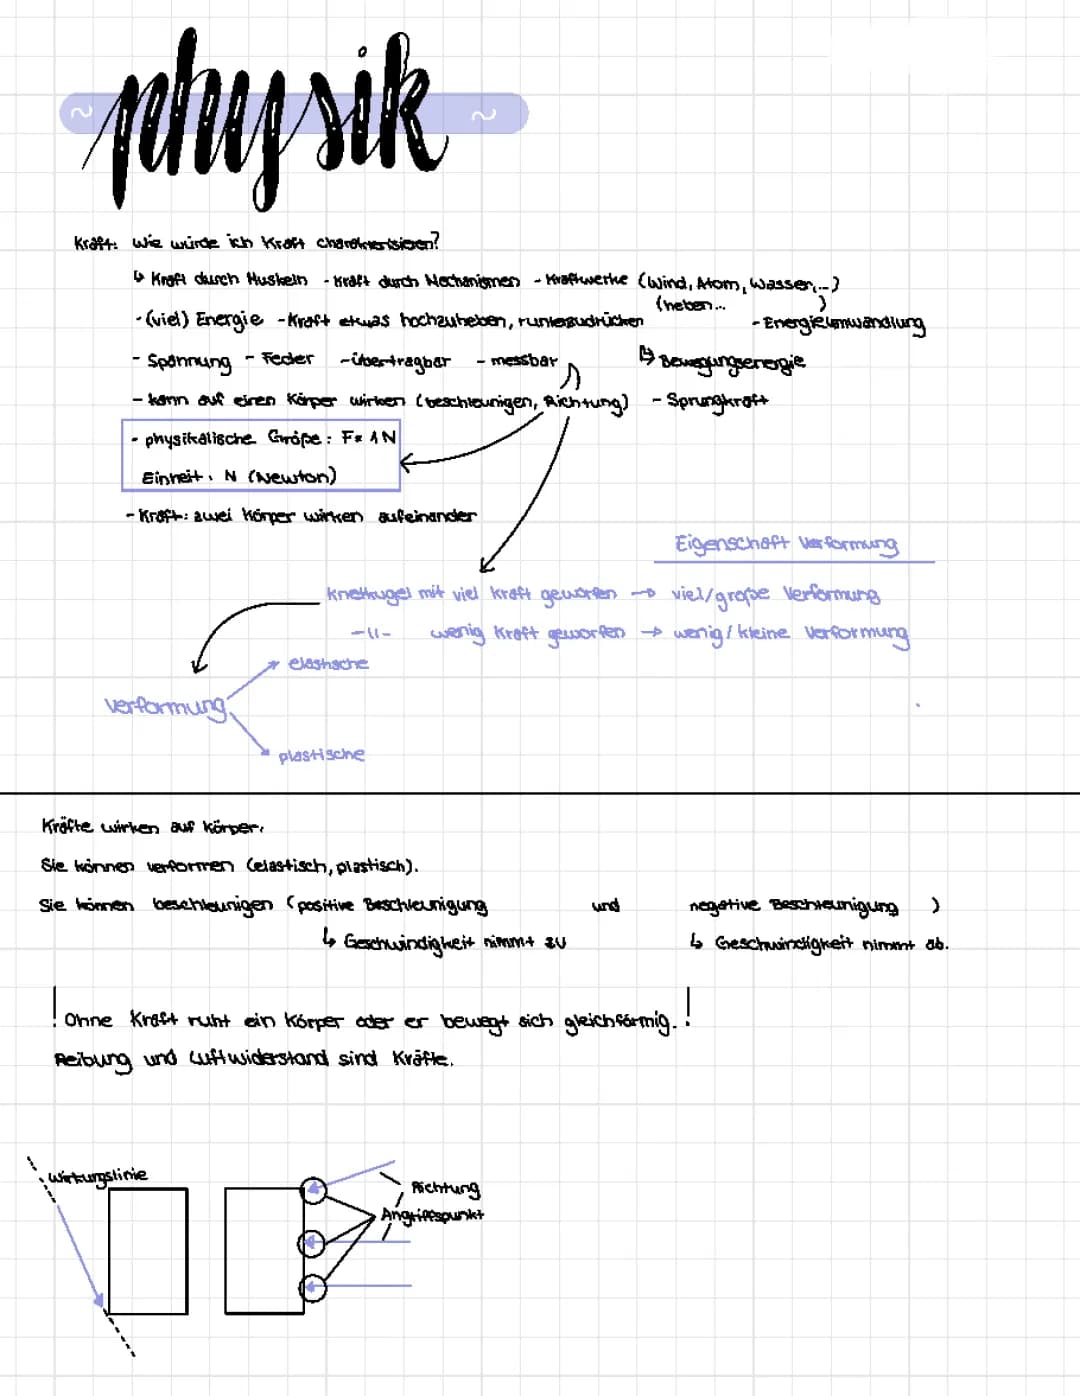 ~ physik ~
Kraft: Wie würde ich Kraft charakterisieren?
↳ Kraft durch Muskeln - Kraft durch Mechanismen - Kraftwerke (Wind, Atom, Wasser,...)
(heben... )
- (viel) Energie - Kraft etwas hochzuheben, runterzudrücken - Energieumwandlung
- Spannung - Feder - übertragbar - messbar ↳ Bewegungsenergie
- kann auf einen Körper wirken (beschleunigen, Richtung) - Sprungkraft
- physikalische Größe: F = 1 N
Einheit: N (Newton)
- Kraft: zwei Körper wirken aufeinander
Eigenschaft Verformung
Knetkugel mit viel Kraft geworfen → viel/große Verformung
-11- wenig Kraft geworfen → wenig/kleine Verformung
elastische
Verformung
plastische
Kräfte wirken auf Körper.
Sie können verformen (elastisch, plastisch).
Sie können beschleunigen (positive Beschleunigung und negative Beschleunigung )
↳ Geschwindigkeit nimmt zu ↳ Geschwindigkeit nimmt ab.
! Ohne Kraft ruht ein Körper oder er bewegt sich gleichförmig. !
Reibung und Luftwiderstand sind Kräfte.
Wirkungslinie
Richtung
Angriffspunkt